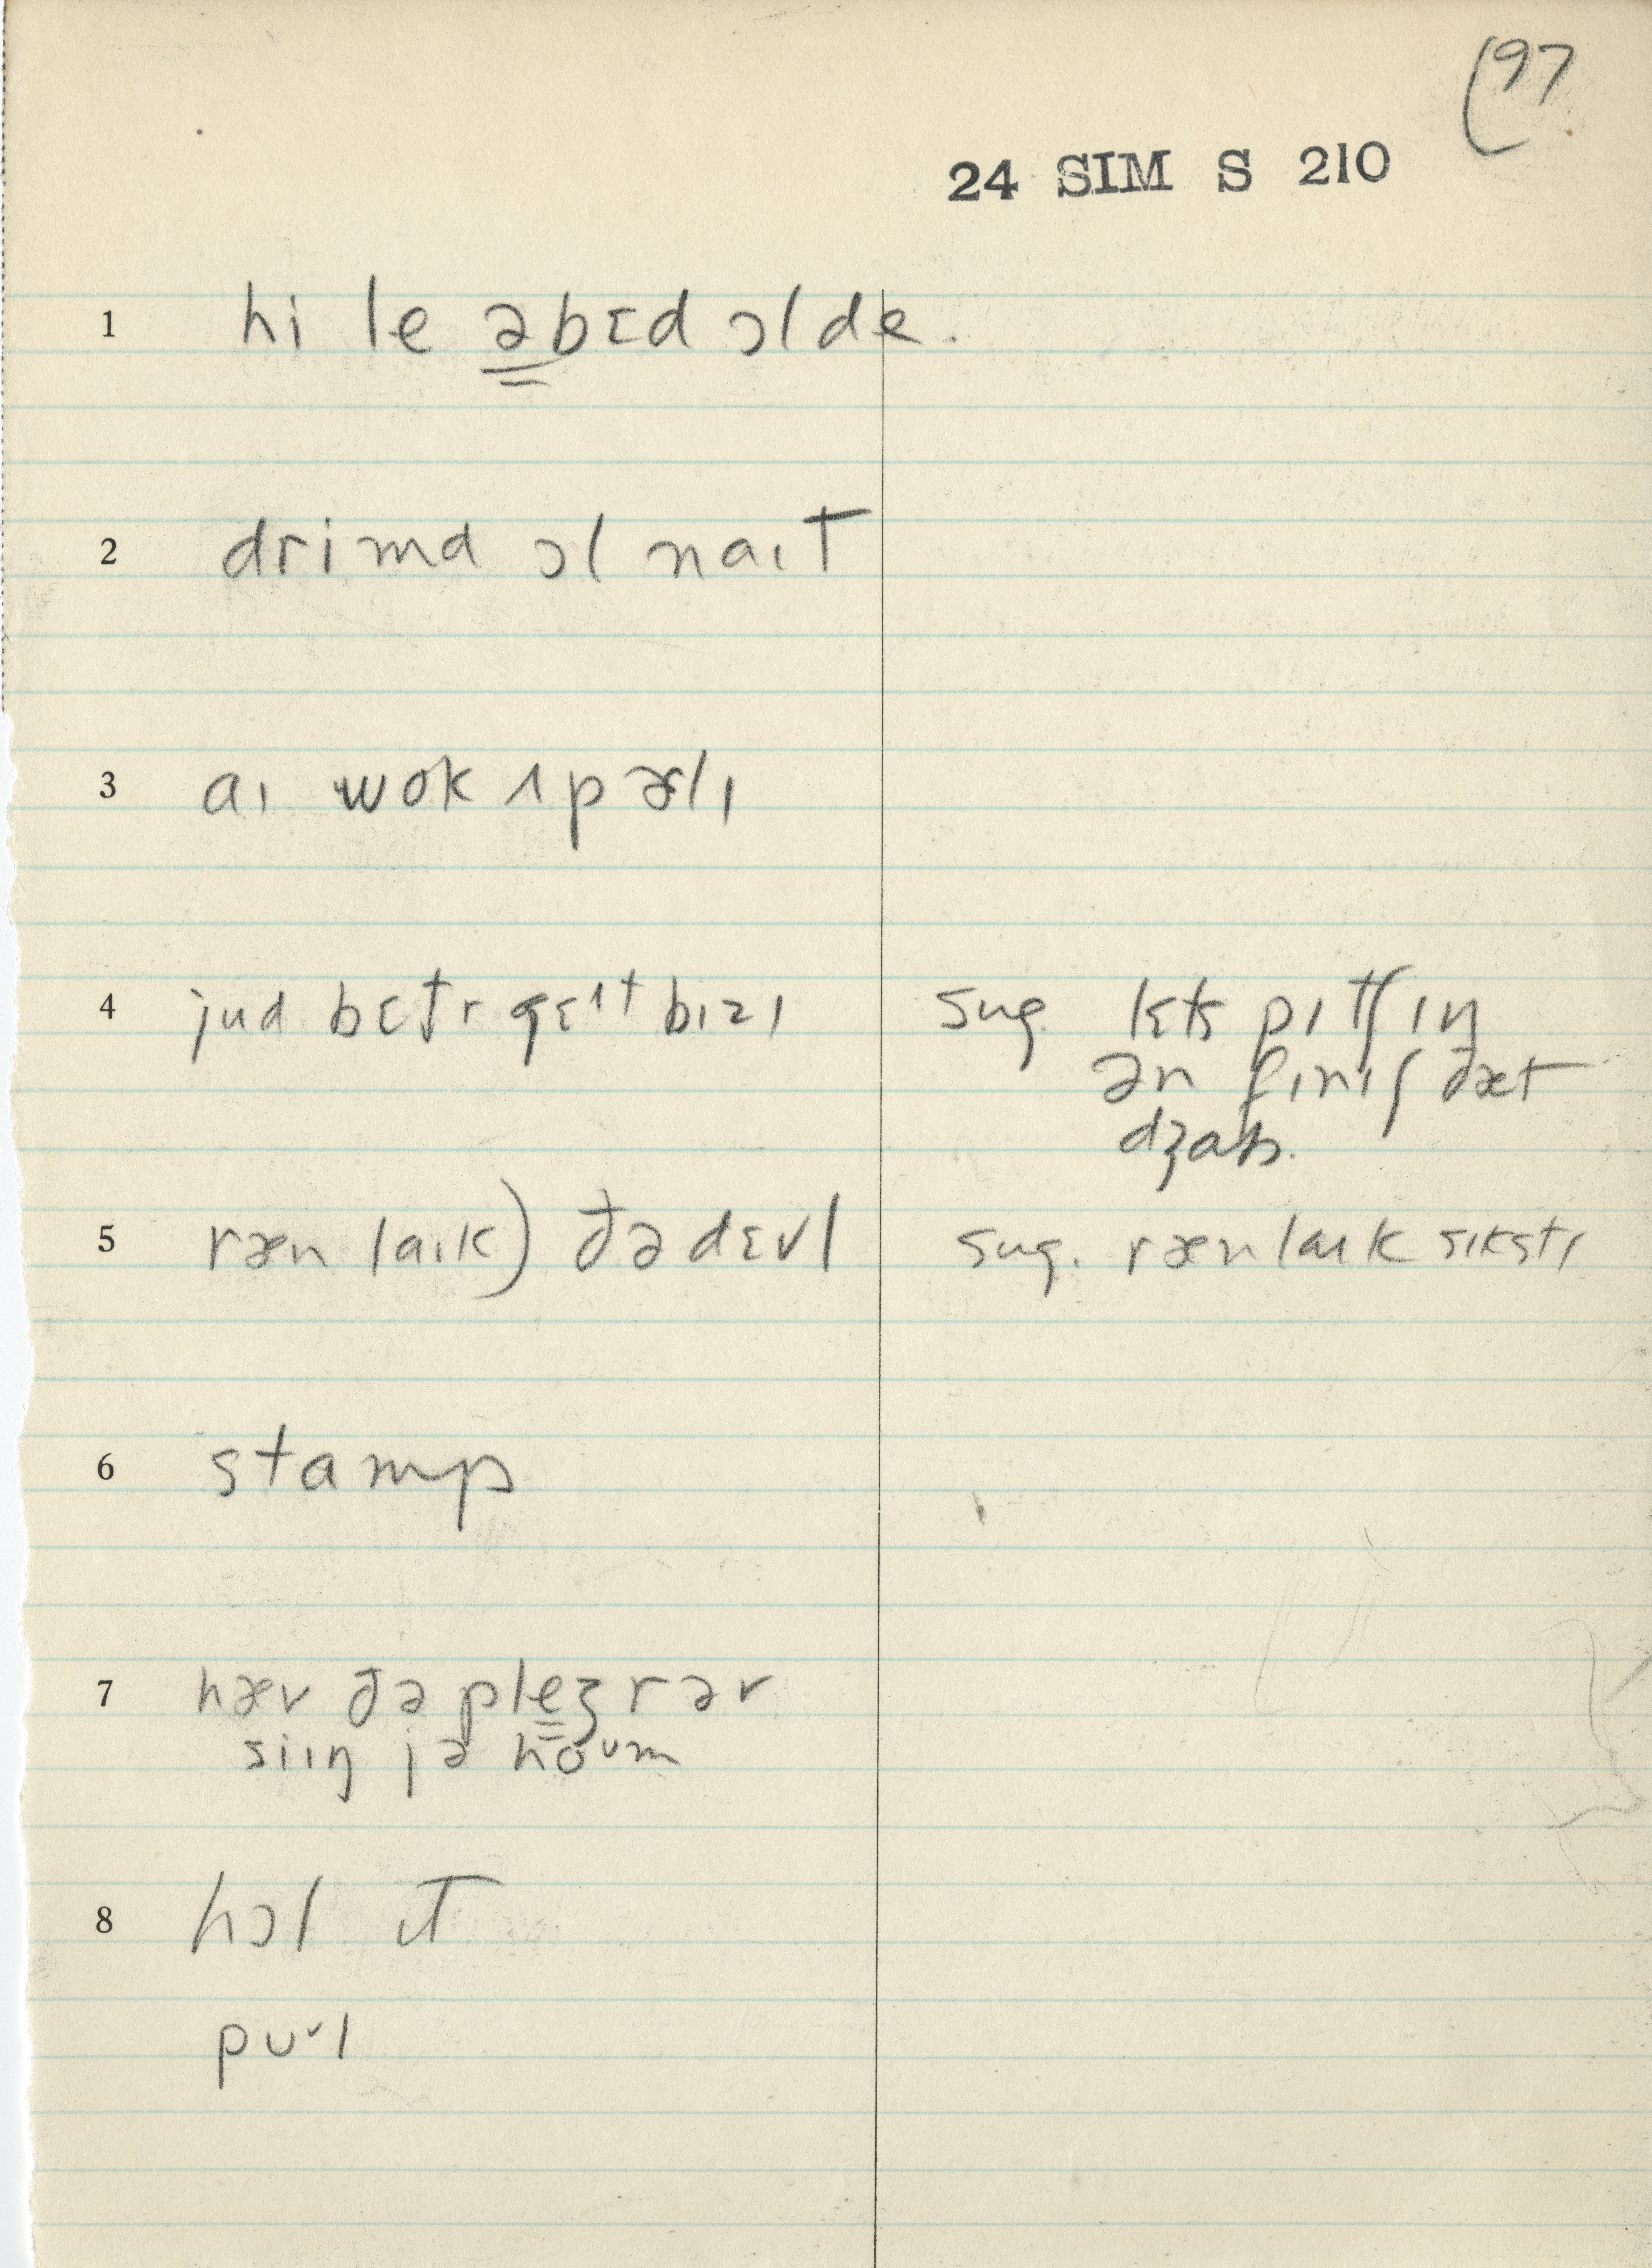 97
24 SIM S 210
1 hi le əbɛd ɔl de.
2 drimd ɔl naɪt
3 aɪ wok ʌp ɚlɪ
4 jud bɛt̬r gɛɪt bɪzɪ
sug. lɛts pɪtʃ ɪn
ən fɪnɪʃ ðæt
dʒab.
5 ræn laɪk) ðə dɛvl
sug. ræn laɪk sɪkstɪ
6 stamp
7 hæv ðə plеʒr ər
siɪŋ jə hoᴜm
8 hɔl ɪt
pᴜl